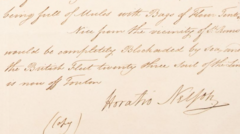 being full of Mules with Bags of Flour
Nice from the vicinity of
would be completely Blockaded by Sea
the British Fleet twenty three Sail of the Line
is now off Toulon
Horatio Nelson
(Copy)